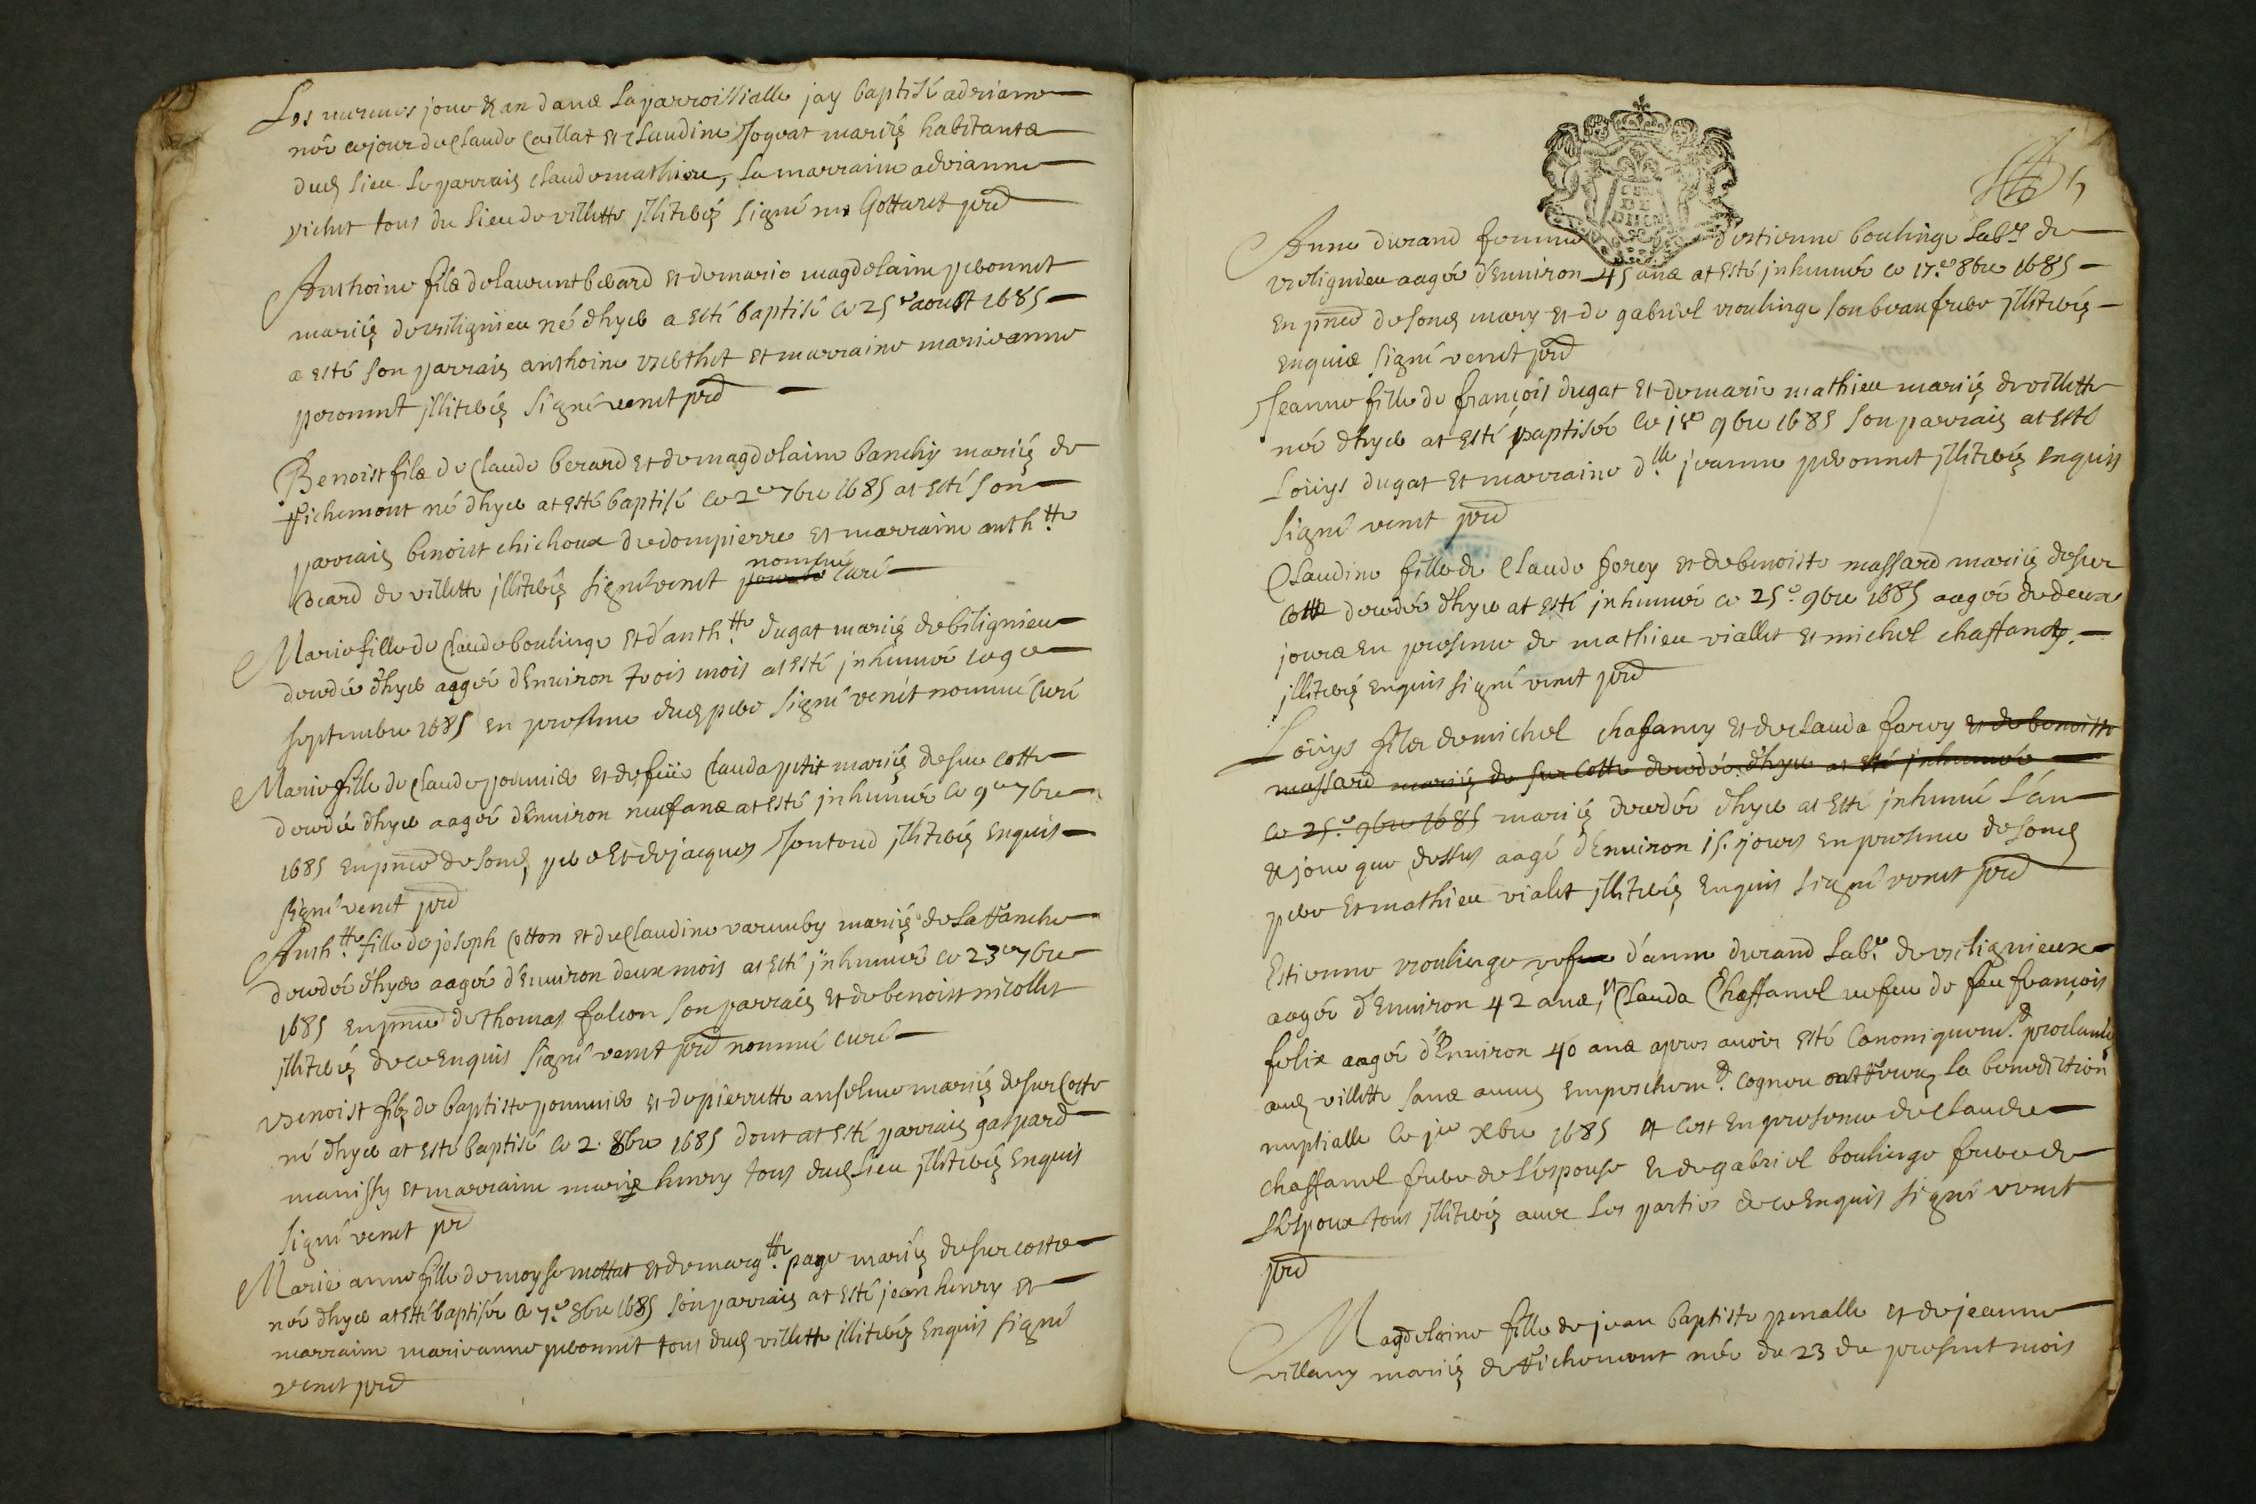 Les mesmes jour & an dans la parroissialle jay baptisé adrianne
née ce jour de Claude Caillat et Claudine Joguat mariés habitants
dud lieu le parrain Claude mathieu, la marraine adrianne
vichet tous du lieu de villette illiterés signé me Gottaret prd
Anthoine fils de laurent berard et de marie magdelaine peronnet
mariés de visilignieu né d'hyer a esté baptisé ce 25e aoust 1685
a esté son parrain anthoine et marraine marieanne
peronnet illiterés signé venet prd
Benoist fils de Claude berard et de magdelaine banchy mariés de
Richemont né d'hyer at esté baptisé ce 2e 7bre 1685 at esté son
parrain benoist chichoux de dompierre et marraine anthtte
beard de villette illiterés signé venet nommé curé
Marie fille de Claude boulinge et d'anthtte dugat mariés de bilignieu
decedée d'hyer aagée d'Environ trois mois at esté inhumée ce 9e
septembre 1685 en presence dud pere signé venet nommé Curé
Marie fille de Claude pommier et de feüe Clauda petit mariés de sur cotte
decedée d'hyer aagée d'Environ neuf ans at esté inhumée ce 9e 7bre
1685 en pnce de sond pere et de jacques Montoud illiterés enquis
signé venet prd
Anthtte fille de joseph Cotton et de Claudine varemby mariés de la tranche
decedée d'hyer aagée d'Environ deux mois at esté inhumée ce 23e 7bre
1685 en pnce de thomas falcon son parrain et de benoist nicollet
illiterés de ce enquis signé venet prd nommé curé
Benoist fils de baptiste pommier et de pierrette anselme mariés de sur Coste
né d'hyer at esté baptisé ce 2. 8bre 1685 dont at esté parrain gaspard
manissy et marraine marie henry tous dud lieu illiterés enquis
signé venet prd
Marie anne fille de moyse mottat et de margtte page mariés de sur coste
née d'hyer at esté baptisée ce 7e 8bre 1685 son parrain at esté jean henry et
marraine marieanne peronnet tous dud villette illiterés enquis signé
venet prd
GEN
DE
DIION
5
Anne durand femme d'estienne boulinge labr de
vilignieu aagée d'Environ 45 ans at esté inhumée ce 17e 8bre 1685
en pnce de sond mary et de gabriel voulinge son beaufrere illiterés
enquis signé venet prd
Jeanne fille de françois dugat et de marie mathieu mariés de villette
née d'hyer at esté baptisée ce 9bre 1685 son parrain at esté
Loüys dugat et marraine dlle jeanne peronnet illiterés enquis
signé venet prd
Claudine fille de Claude forey et de benoiste massard mariés de sur
cotte decedée d'hyer at esté inhumée ce 25e 9bre 1685 aagée de deux
jours en presence de mathieu viallet et michel chaffancy
illiterés enquis signé venet prd
Loüys fils de michel chaffancy et de clauda farey et de benoiste
massard mariés de sur cotte decedée d'hyer at esté inhumée
ce 25e 9bre 1685 mariés decedé d'hyer at esté inhumé l'an
& jour que dessus aagé d'Environ 15 jours en presence de sond
pere et mathieu vialet illiterés enquis signé venet prd
Estienne voulinge vefve d'anne durand labr de visilignieux
aagé d'Environ 42 ans, et Clauda Chaffanel vefve de feu françois
felix aagée d'Environ 40 ans apres avoir esté Canoniquemt proclamés
aud villette sans aucun empeschemt cogneu ont receu la benediction
nuptialle ce Xbre 1685 et c'est en presence de Claude
chaffanel frere de l'espouse et de gabriel boulinge frere de
l'espoux tous illiterés avec les parties de ce enquis signé venet
prd
Magdelaine fille de jean baptiste penalle et de jeanne
villamy mariés de Richemont née du 23 du present mois